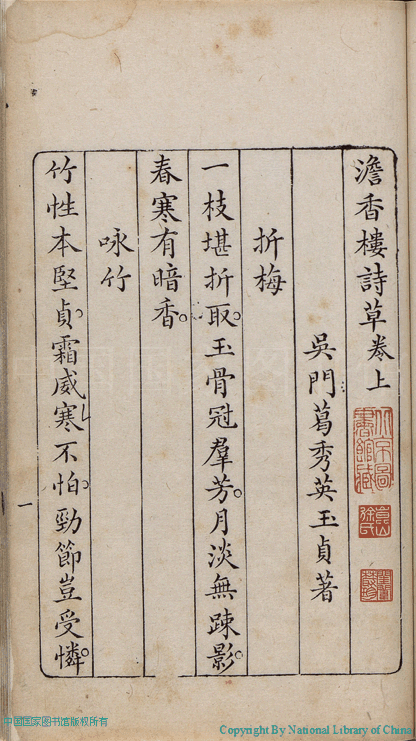 澹香樓詩草卷上
吳門葛秀英玉貞著
折梅
一枝堪折取。玉骨冠羣芳。月淡無踈影。
春寒有暗香。
咏竹
竹性本堅貞。霜威寒不怕。勁節豈受憐。
一
北京圖書館藏
中国国家图书馆版权所有
Copyright By National Library of China